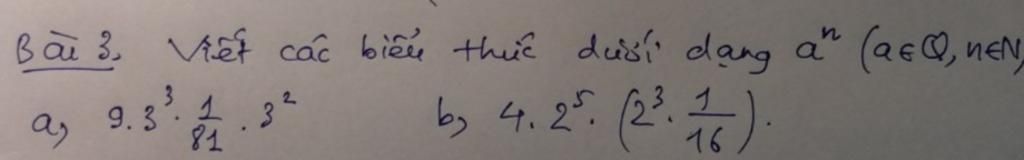 Bài 3, Viết các biểu thức dưới dạng aⁿ (a∈Q, n∈N)
a, 9.3³.1/81.3² b, 4.2⁵.(2³.1/16).